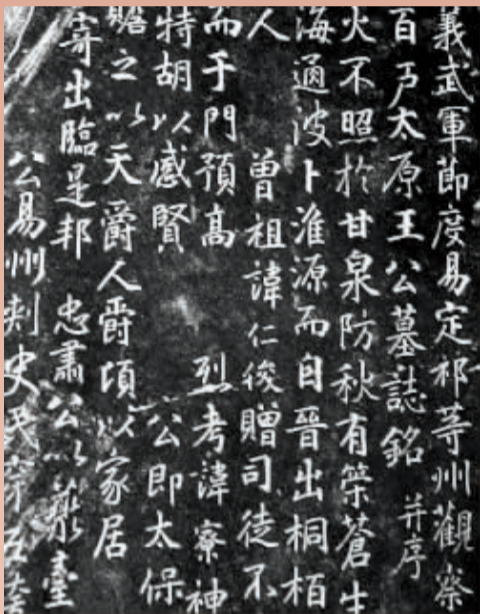 義武軍節度易定祁等州觀察
百戶太原王公墓誌銘 并序
火不照於甘泉防秋有築蒼生
海波卜淮源而自晉出桐栢
人 曾祖諱仁俊贈司徒不
而于門預高 烈考諱寮神
特胡以感賢 公即太保
贍之以天爵人爵頃以家居
寄出臨是邦 忠肅公以臺
公易州刺史